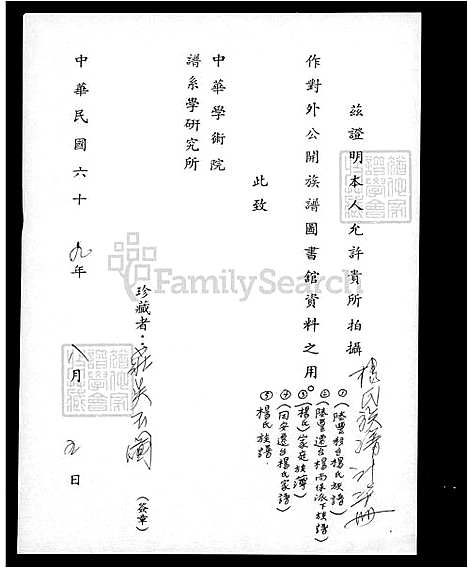 茲證明本人允許貴所拍攝楊氏族譜計冊
①(陸豐移台楊氏族譜)
②(陸豐遷台楊尚保派下族譜)
③(楊氏)家庭族簿
④(同安遷台楊氏家譜)
⑤楊氏族譜
作對外公開族譜圖書館資料之用。
此致
中華學術院
譜系學研究所
珍藏者:莊吳玉圓(簽章)
中華民國六十九年八月九日
FamilySearch